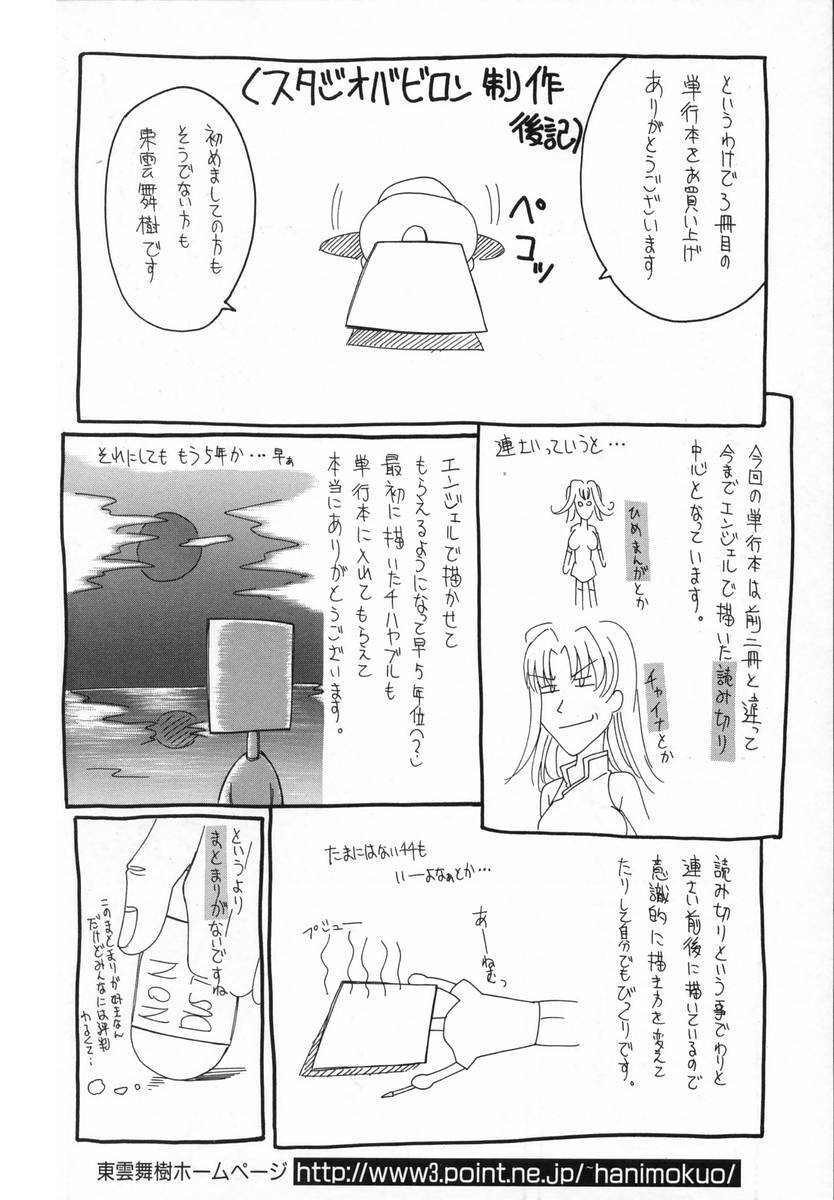 〈スタジオバビロン制作
後記〉
というわけで3冊目の
単行本をお買い上げ
ありがとうございます
ペコッ
初めましての方も
そうでない方も
東雲舞樹です
今回の単行本は前二冊と違って
今までエンジェルで描いた読み切り
中心となっています。
連さいっていうと…
ひめまんがとか
チャイナとか
エンジェルで描かせて
もらえるようになって早5年位(?)
最初に描いたチハヤブルも
単行本に入れてもらえて
本当にありがとうございます。
それにしても もう5年か…早ぁ
読み切りという事でわりと
連さい前後に描いているので
意識的に描き方を変えて
たりして自分でもびっくりです。
たまにはない44も
いーよなぁとか…
あーねむっ
プシュー
というより
まとまりがないですね
このまとまりが好きなん
だけどみんなには評判
わるくて…
NON
DIST
東雲舞樹ホームページ http://www3.point.ne.jp/~hanimokuo/